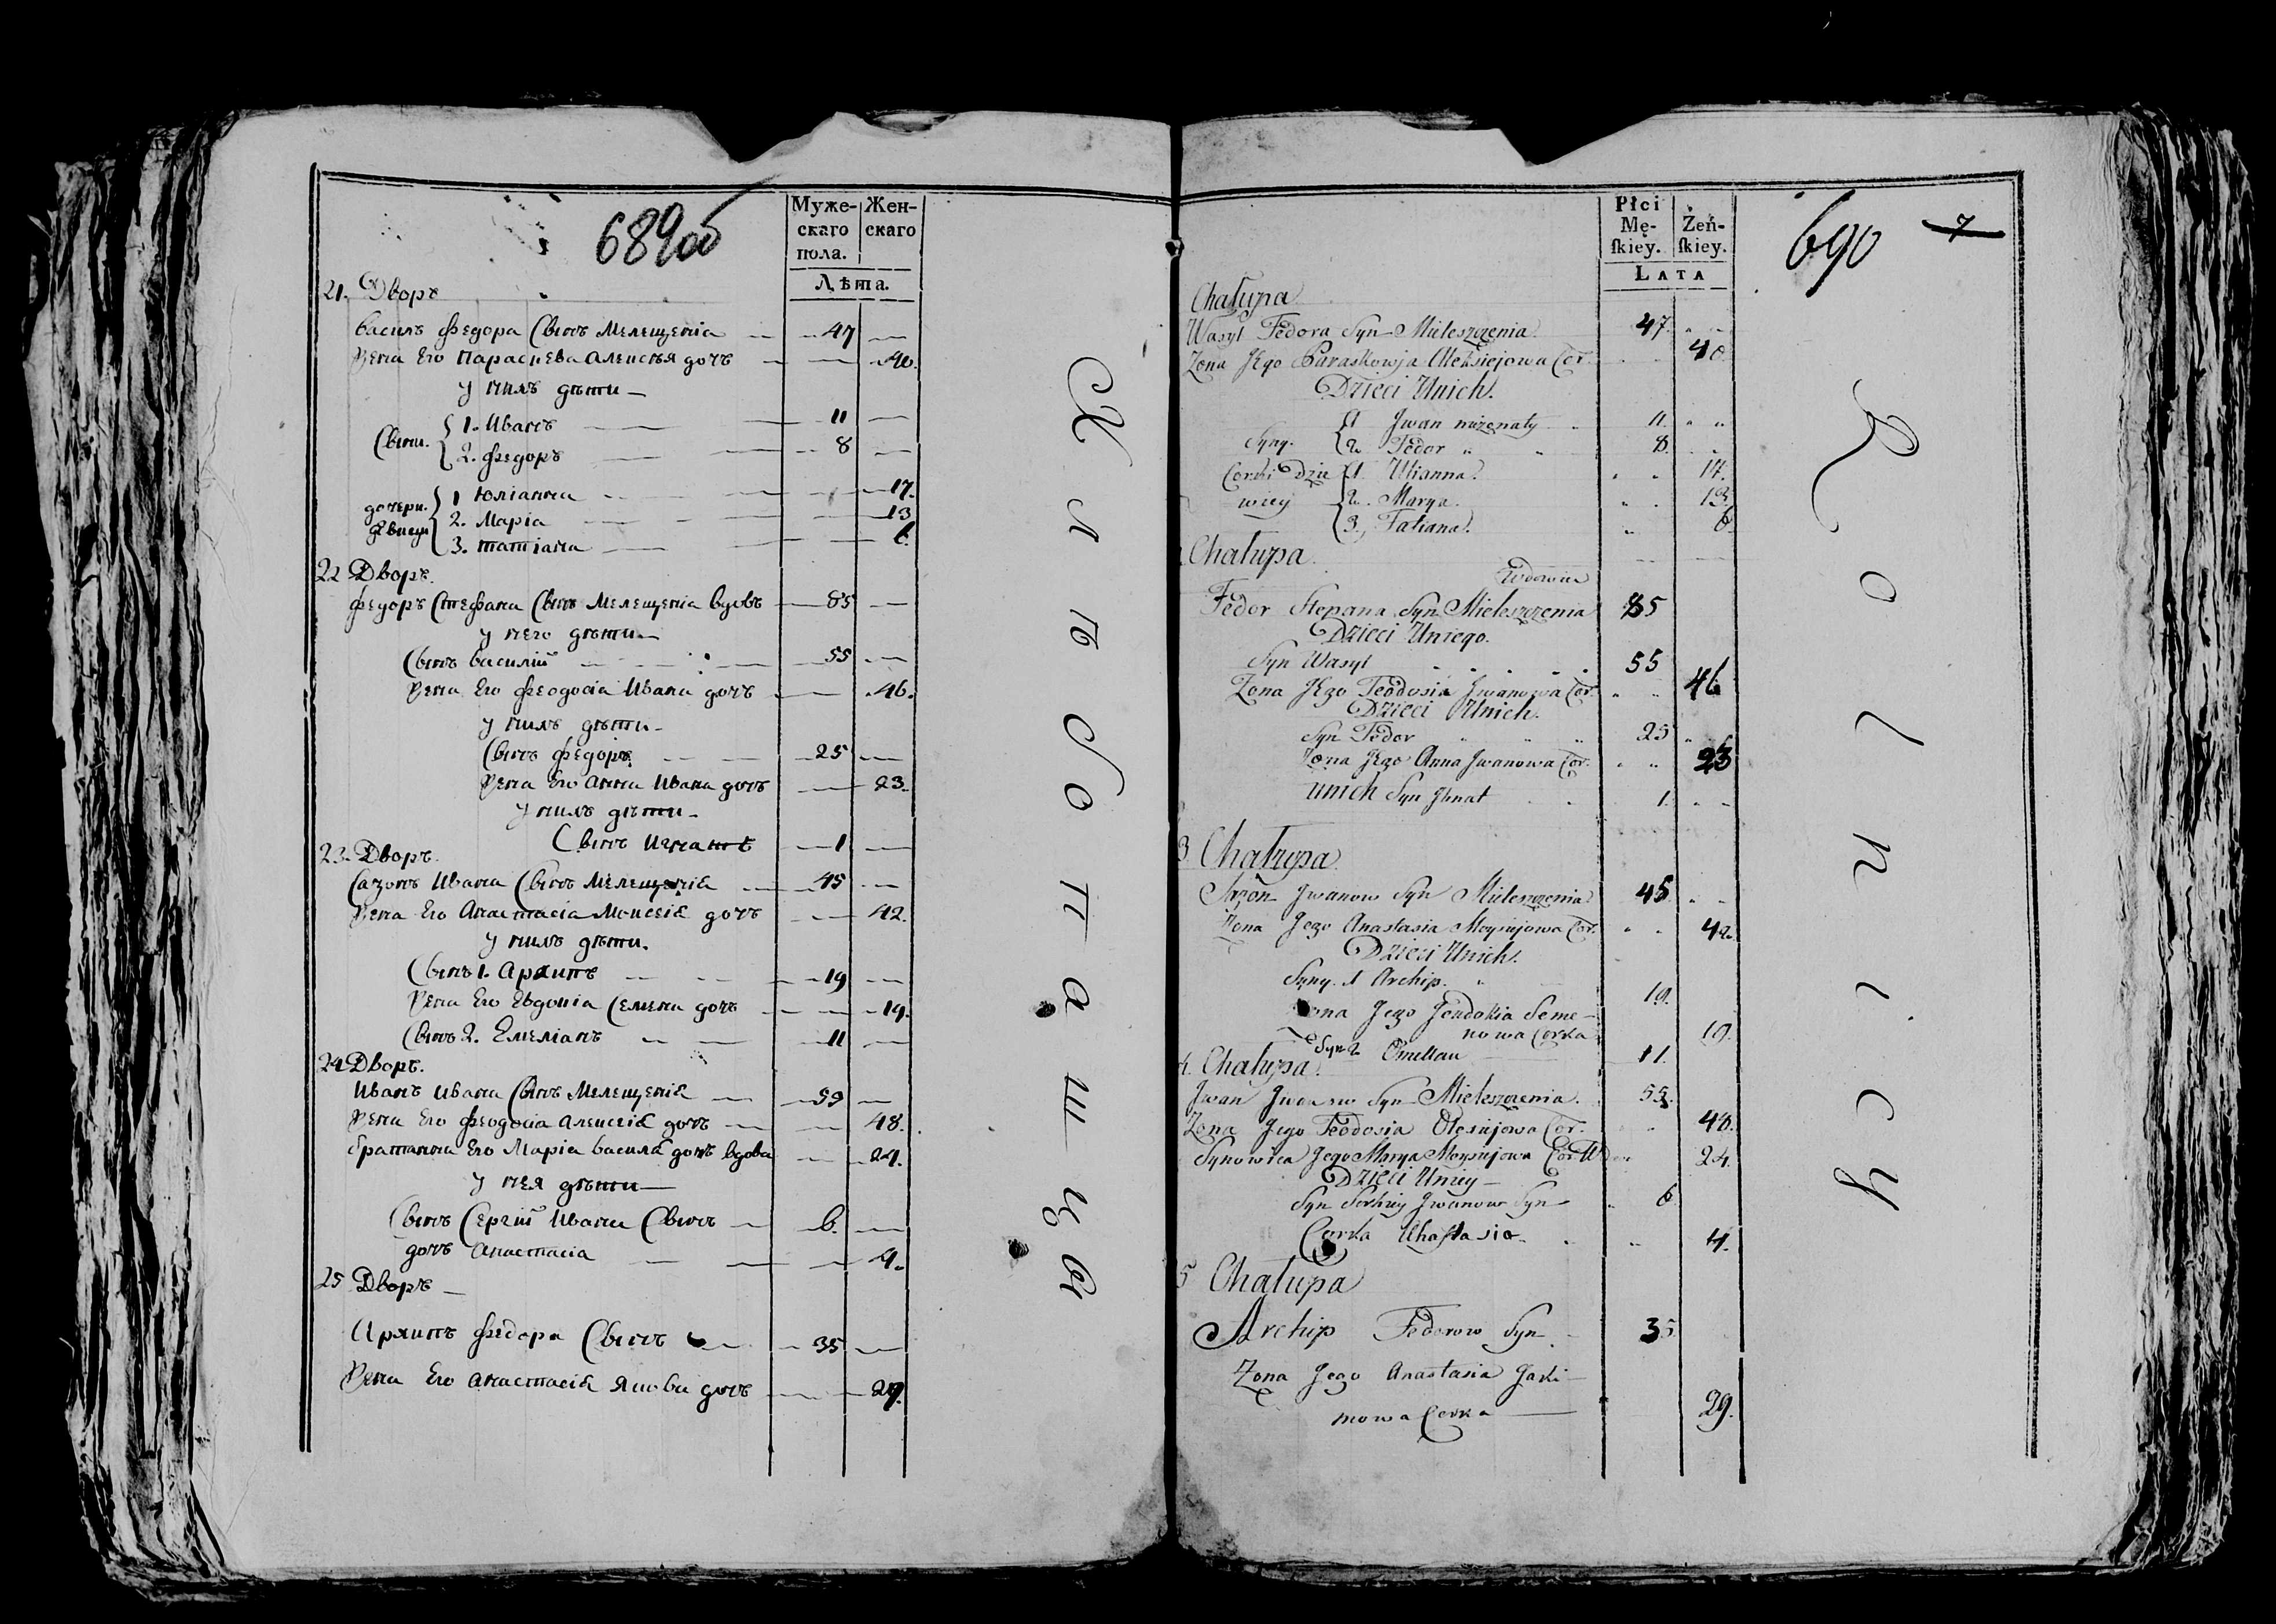 689об
Муже-
скаго
пола.
Жен-
скаго
Лѣта.
21. Дворъ
Василъ Федора Сынъ Мелещеніа 47
Жена Его Параскева Алексѣя дочъ 40.
У нихъ дѣти
Сыны.
1. Иванъ 11
2. Федоръ 8
дочери. девици
1 Юліанна 17.
2. Маріа 13
3. Татіана 6.
22 Дворъ.
Федоръ Стефана Сынъ Мелещеніа вдовъ 85
У него дѣти
Сынъ Василій 55
Жена Его Феодосіа Ивана дочъ 46.
У нихъ дѣти
Сынъ Федоръ 25
Жена Его Анна Ивана дочъ 23.
У нихъ дѣти
Сынъ Игнатъ 1
23. Дворъ.
Сазонъ Ивана Сынъ Мелещеніа 45
Жена Его Анастасіа Моисеіа дочъ 42.
У нихъ дѣти.
Сынъ 1. Архипъ 19
Жена Его Евдокіа Семена дочъ 19.
Сынъ 2. Емеліанъ 11
24 Дворъ.
Иванъ Ивана Сынъ Мелещеніа 59
Жена Его Феодосіа Алексеіа дочъ 48.
братанна Его Маріа Василіа дочъ вдова 24.
У нея дѣти
Сынъ Сергій Ивана Сынъ 6.
дочъ Анастасіа 4.
25 Дворъ
Архипъ Федора Сынъ 35
Жена Его Анастасіа Якова дочъ 29.
Хлѣбопашца
690 7
Płci
Mę-
ſkiey.
Żeń-
ſkiey.
Lata
Chałupa
Wasyl Fedora Syn Mieleszczenia 47.
Zona Jego Paraskowja Aleksiejowa Cor. 40
Dzieci Unich.
Syny.
1 Jwan nieżenaty 11.
2. Fedor 8.
Corki Dzie
wicy
1. Ulianna. 17.
2. Marya. 13.
3. Tatiana. 6.
Chałupa
Wdowiec
Fedor Stepana Syn Mieleszczenia 85
Dzieci Uniego.
Syn Wasyl 55
Zona Jego Teodosia Jwanowa Cor. 46
Dzieci Unich.
Syn Fedor 25
Zona Jego Anna Jwanowa Cor. 23
unich Syn Jhnat 1.
3. Chałupa
Sazon Jwanow Syn Mieleszczenia 45
Zona Jego Anastasia Moysiejowa Cor. 42.
Dzieci Unich.
Syny. 1 Archip. 19.
Zona Jego Jewdokia Seme-
nowa Corka 19.
Syn 2 Omellan 11.
4. Chałupa.
Jwan Jwanow Syn Mieleszczenia. 59.
Zona Jego Teodosia Olesiejowa Cor. 48.
Synowica Jego Marya Moysiejowa Cor. W 24.
Dzieci Uniey
Syn Serhiey Jwanow Syn 6
Corka Uhastasia 4.
5 Chałupa
Archip Fedorow Syn 35
Zona Jego Anastasia Jaki-
mowa Corka 29.
Rolnicy